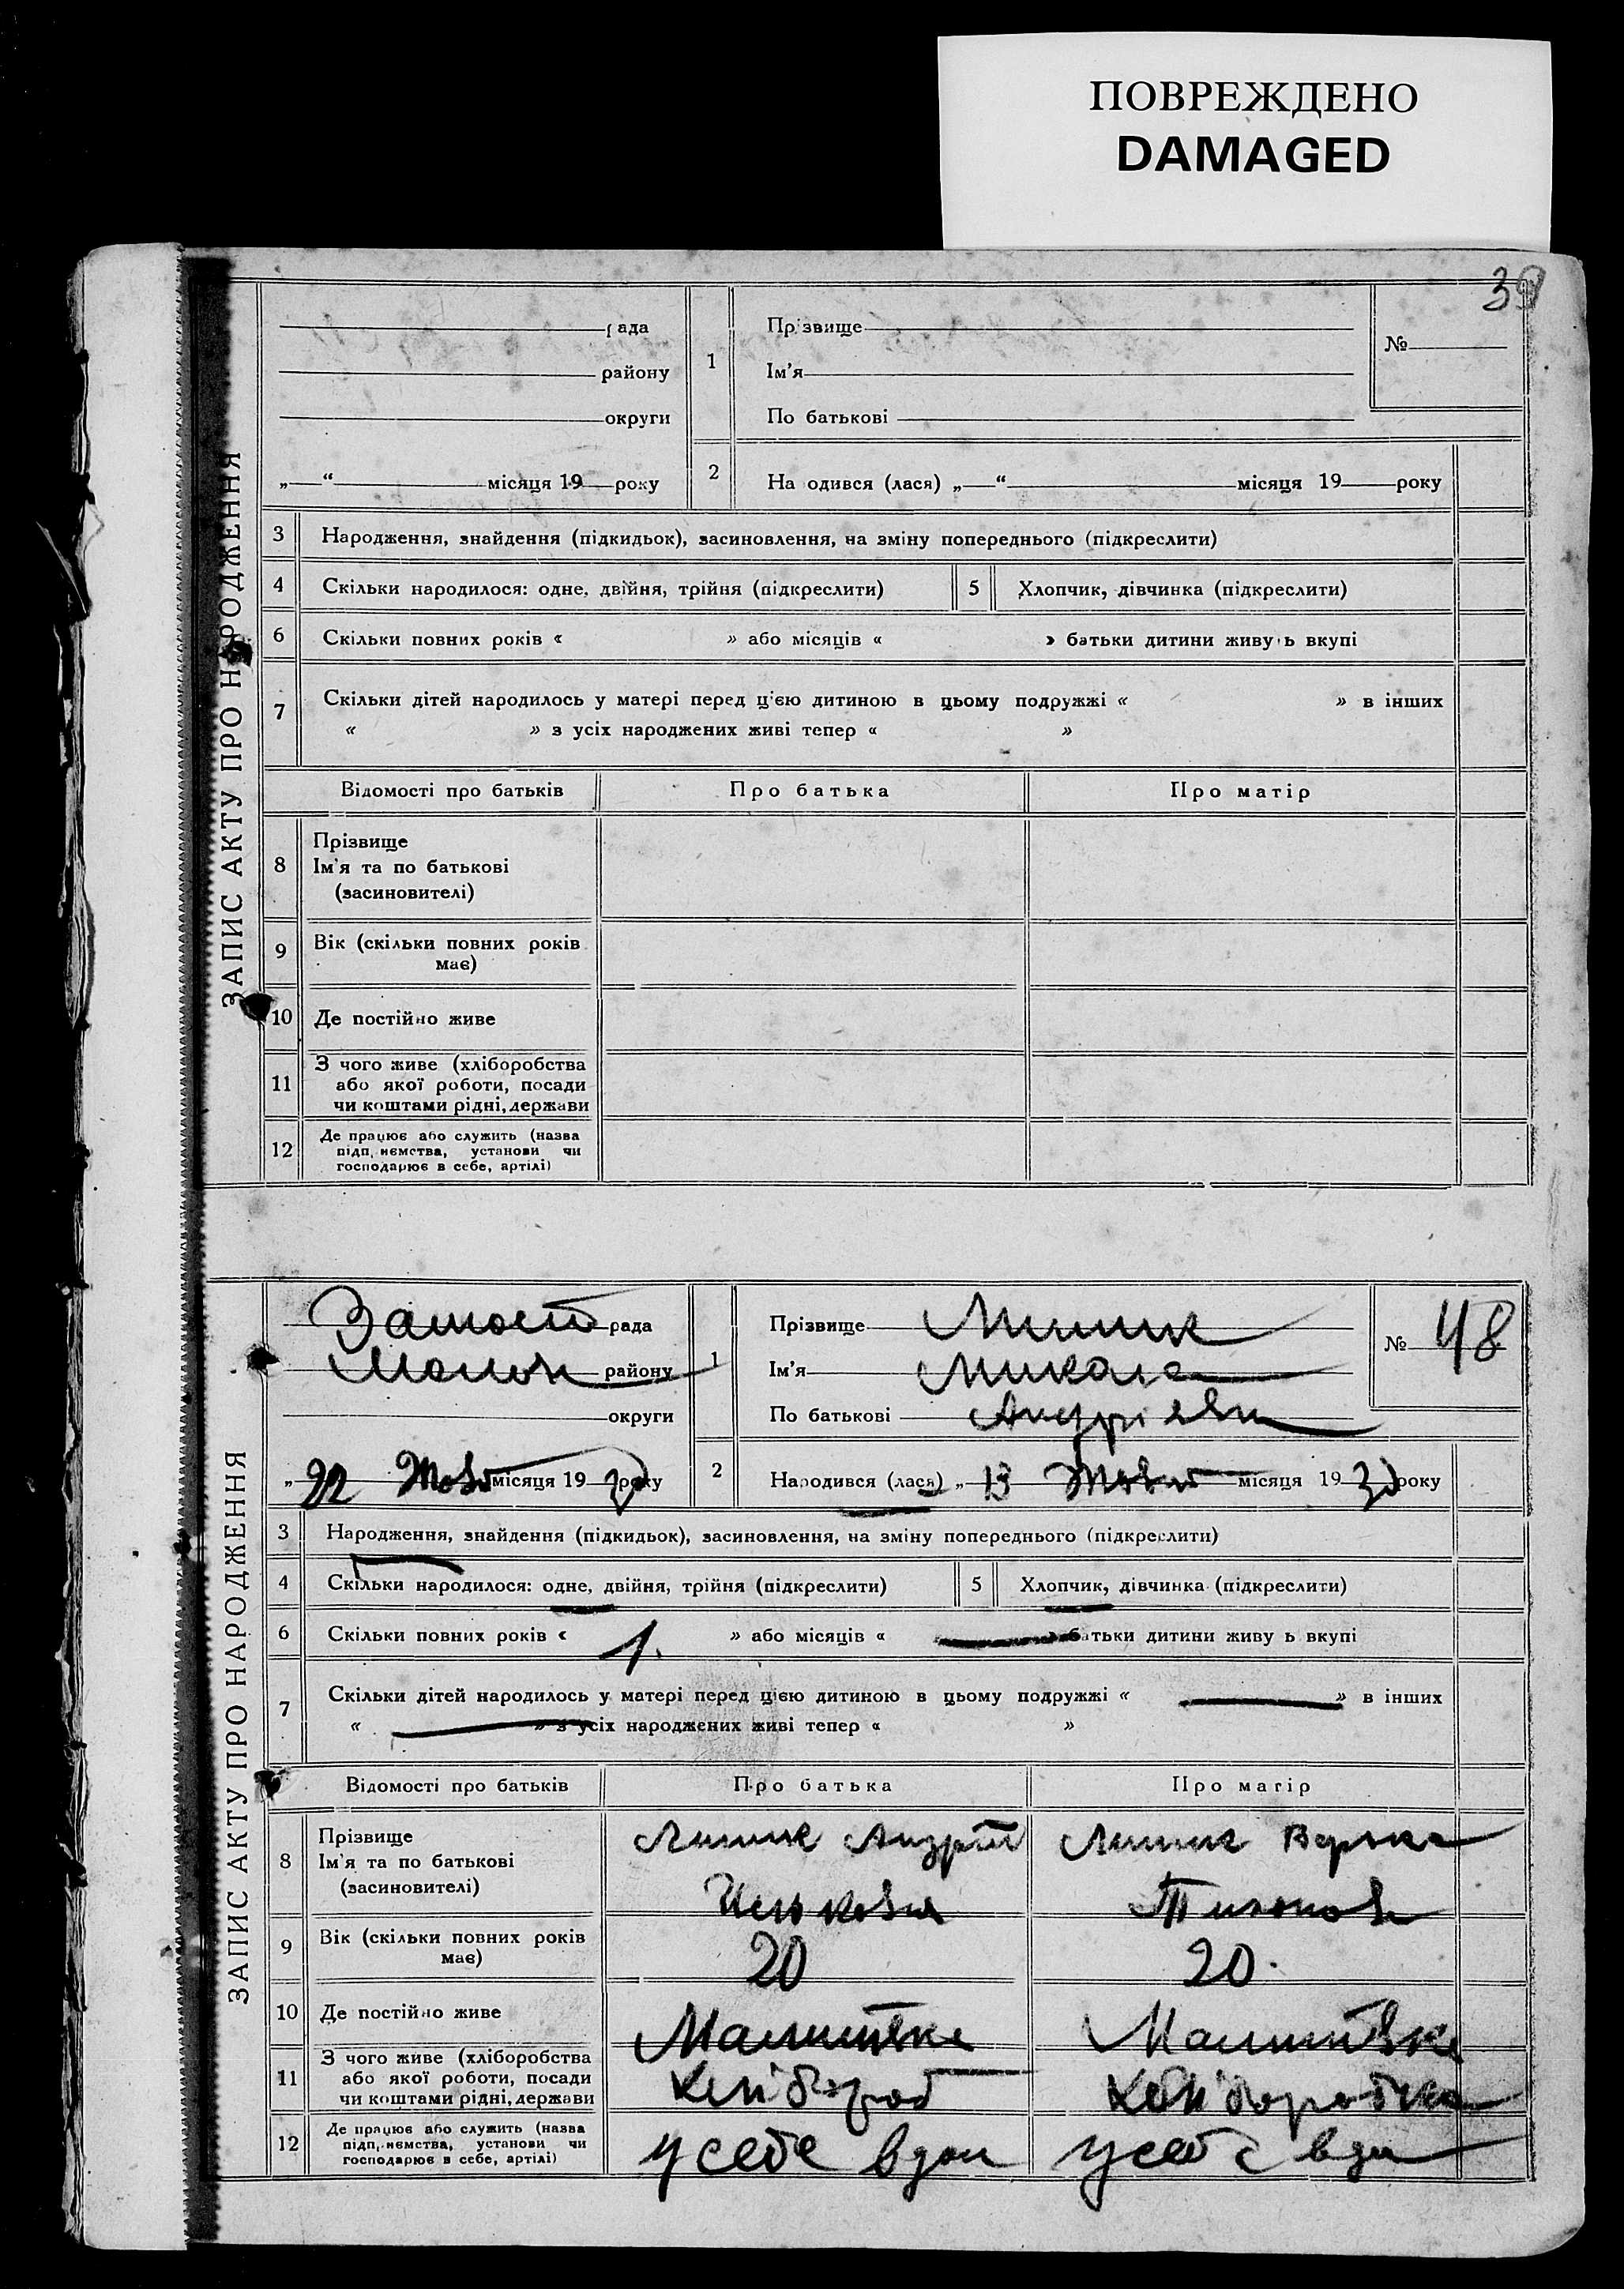 ПОВРЕЖДЕНО
DAMAGED
39
ЗАПИС АКТУ ПРО НАРОДЖЕННЯ
рада
району
округи
„ “ місяця 19 року
1
Прізвище
Ім'я
По батькові
№
2
Народився (лася) „ “ місяця 19 року
3 Народження, знайдення (підкидьок), засиновлення, на зміну попереднього (підкреслити)
4 Скільки народилося: одне, двійня, трійня (підкреслити) 5 Хлопчик, дівчинка (підкреслити)
6 Скільки повних років « » або місяців « » батьки дитини живуть вкупі
7 Скільки дітей народилось у матері перед цією дитиною в цьому подружжі « » в інших
« » з усіх народжених живі тепер « »
Відомості про батьків Про батька Про матір
8 Прізвище
Ім'я та по батькові
(засиновителі)
9 Вік (скільки повних років
має)
10 Де постійно живе
11 З чого живе (хліборобства
або якої роботи, посади
чи коштами рідні, держави
12 Де працює або служить (назва
підприємства, установи чи
господарює в себе, артілі)
ЗАПИС АКТУ ПРО НАРОДЖЕННЯ
Замост рада
району
округи
„ 22 Жовт місяця 19 30 року
1
Прізвище
Ім'я Микола
По батькові Андрієви
№ 48
2
Народився (лася) „ 13 Жовт місяця 19 30 року
3 Народження, знайдення (підкидьок), засиновлення, на зміну попереднього (підкреслити)
4 Скільки народилося: одне, двійня, трійня (підкреслити) 5 Хлопчик, дівчинка (підкреслити)
6 Скільки повних років « 1. » або місяців « батьки дитини живу ь вкупі
7 Скільки дітей народилось у матері перед цією дитиною в цьому подружжі « » в інших
« » з усіх народжених живі тепер « »
Відомості про батьків Про батька Про матір
8 Прізвище
Ім'я та по батькові
(засиновителі)
Андрій
9 Вік (скільки повних років
має)
20 20.
10 Де постійно живе
11 З чого живе (хліборобства
або якої роботи, посади
чи коштами рідні, держави
12 Де працює або служить (назва
підприємства, установи чи
господарює в себе, артілі)
у себе вдом у себе вдм